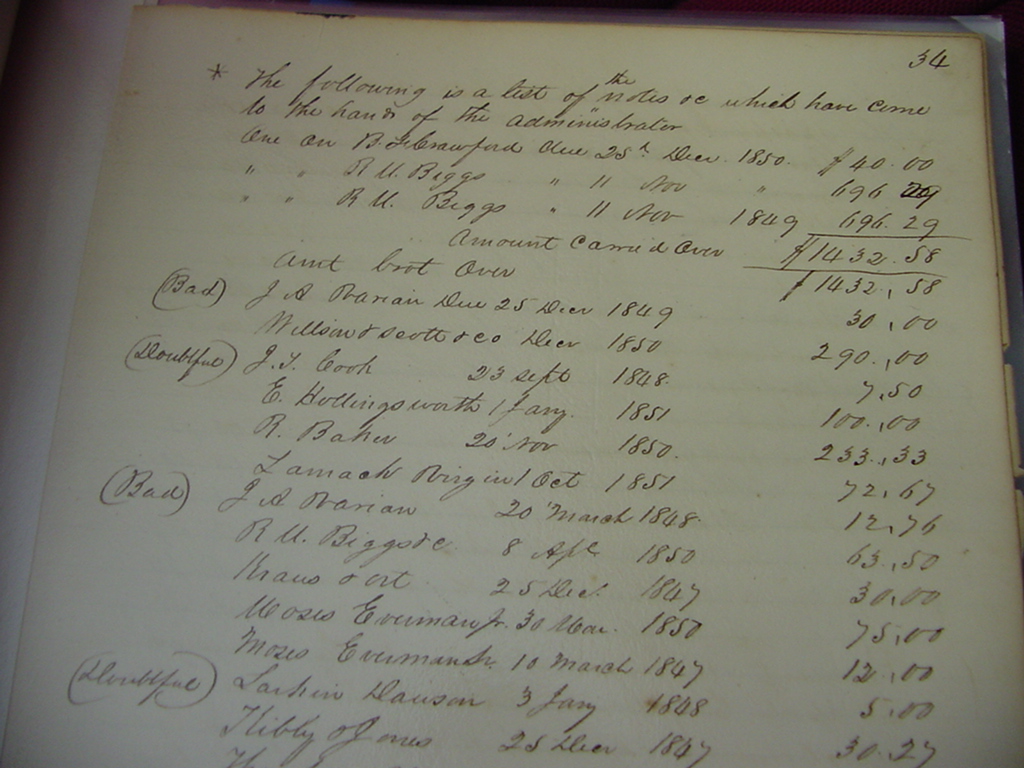 34
* The following is a list of the notes &c which have come
to the hands of the administrator
One on B. F. Crawford due 25th Decr. 1850. $40.00
" " R M. Biggs " 11 Nov " 696 29
" " R M. Biggs " 11 Nov 1849 696.29
Amount Carried Over $1432.58
Amt brot Over $1432,58
(Bad) J A Varian Due 25 Decr 1849 30,00
Willson & Scott & co Decr 1850 290.,00
(Doubtful) J. T. Cook 23 Sept 1848. 7,50
E. Hollingsworth 1 Jany. 1851 100.,00
R. Baker 20 Nov 1850. 233.,33
Lamack Virgin 1 Oct 1851 72,67
(Bad) J A Varian 20 March 1848. 12,76
R M. Biggs &c 8 Apl 1850 63.,50
25 Dec. 1847 30.00
Moses Everman Jr. 30 Mar. 1850 75,00
Moses Everman Sr. 10 March 1847 12,00
(Doubtful) Larkin Dawson 3 Jany 1848 5.00
Kibby & Jones 25 Decr 1847 30.27